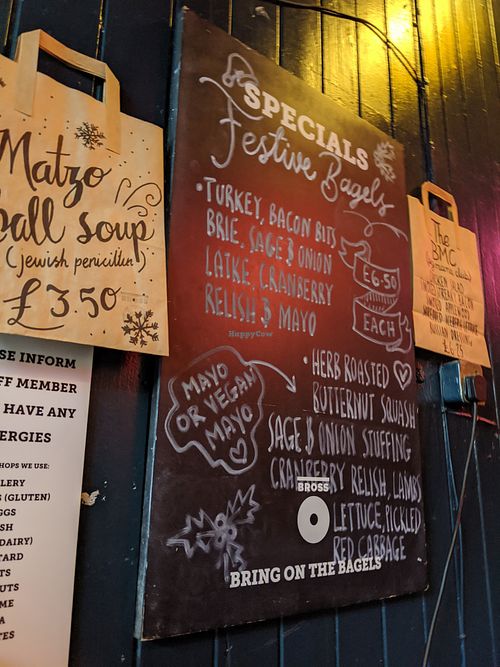 Matzo
ball soup
(jewish penicillin)
£3.50
SE INFORM
FF MEMBER
HAVE ANY
ERGIES
HOPS WE USE:
LERY
(GLUTEN)
GGS
SH
DAIRY)
TARD
TS
UTS
ME
A
TES
SPECIALS
Festive Bagels
• TURKEY, BACON BITS
BRIE, SAGE & ONION
LATKE, CRANBERRY
RELISH & MAYO
£6.50
EACH
HappyCow
MAYO
OR VEGAN
MAYO
• HERB ROASTED
BUTTERNUT SQUASH
SAGE & ONION STUFFING
CRANBERRY RELISH, LAMBS
LETTUCE, PICKLED
RED CABBAGE
BROSS
BRING ON THE BAGELS
The
BMC
CHICKEN SALAD